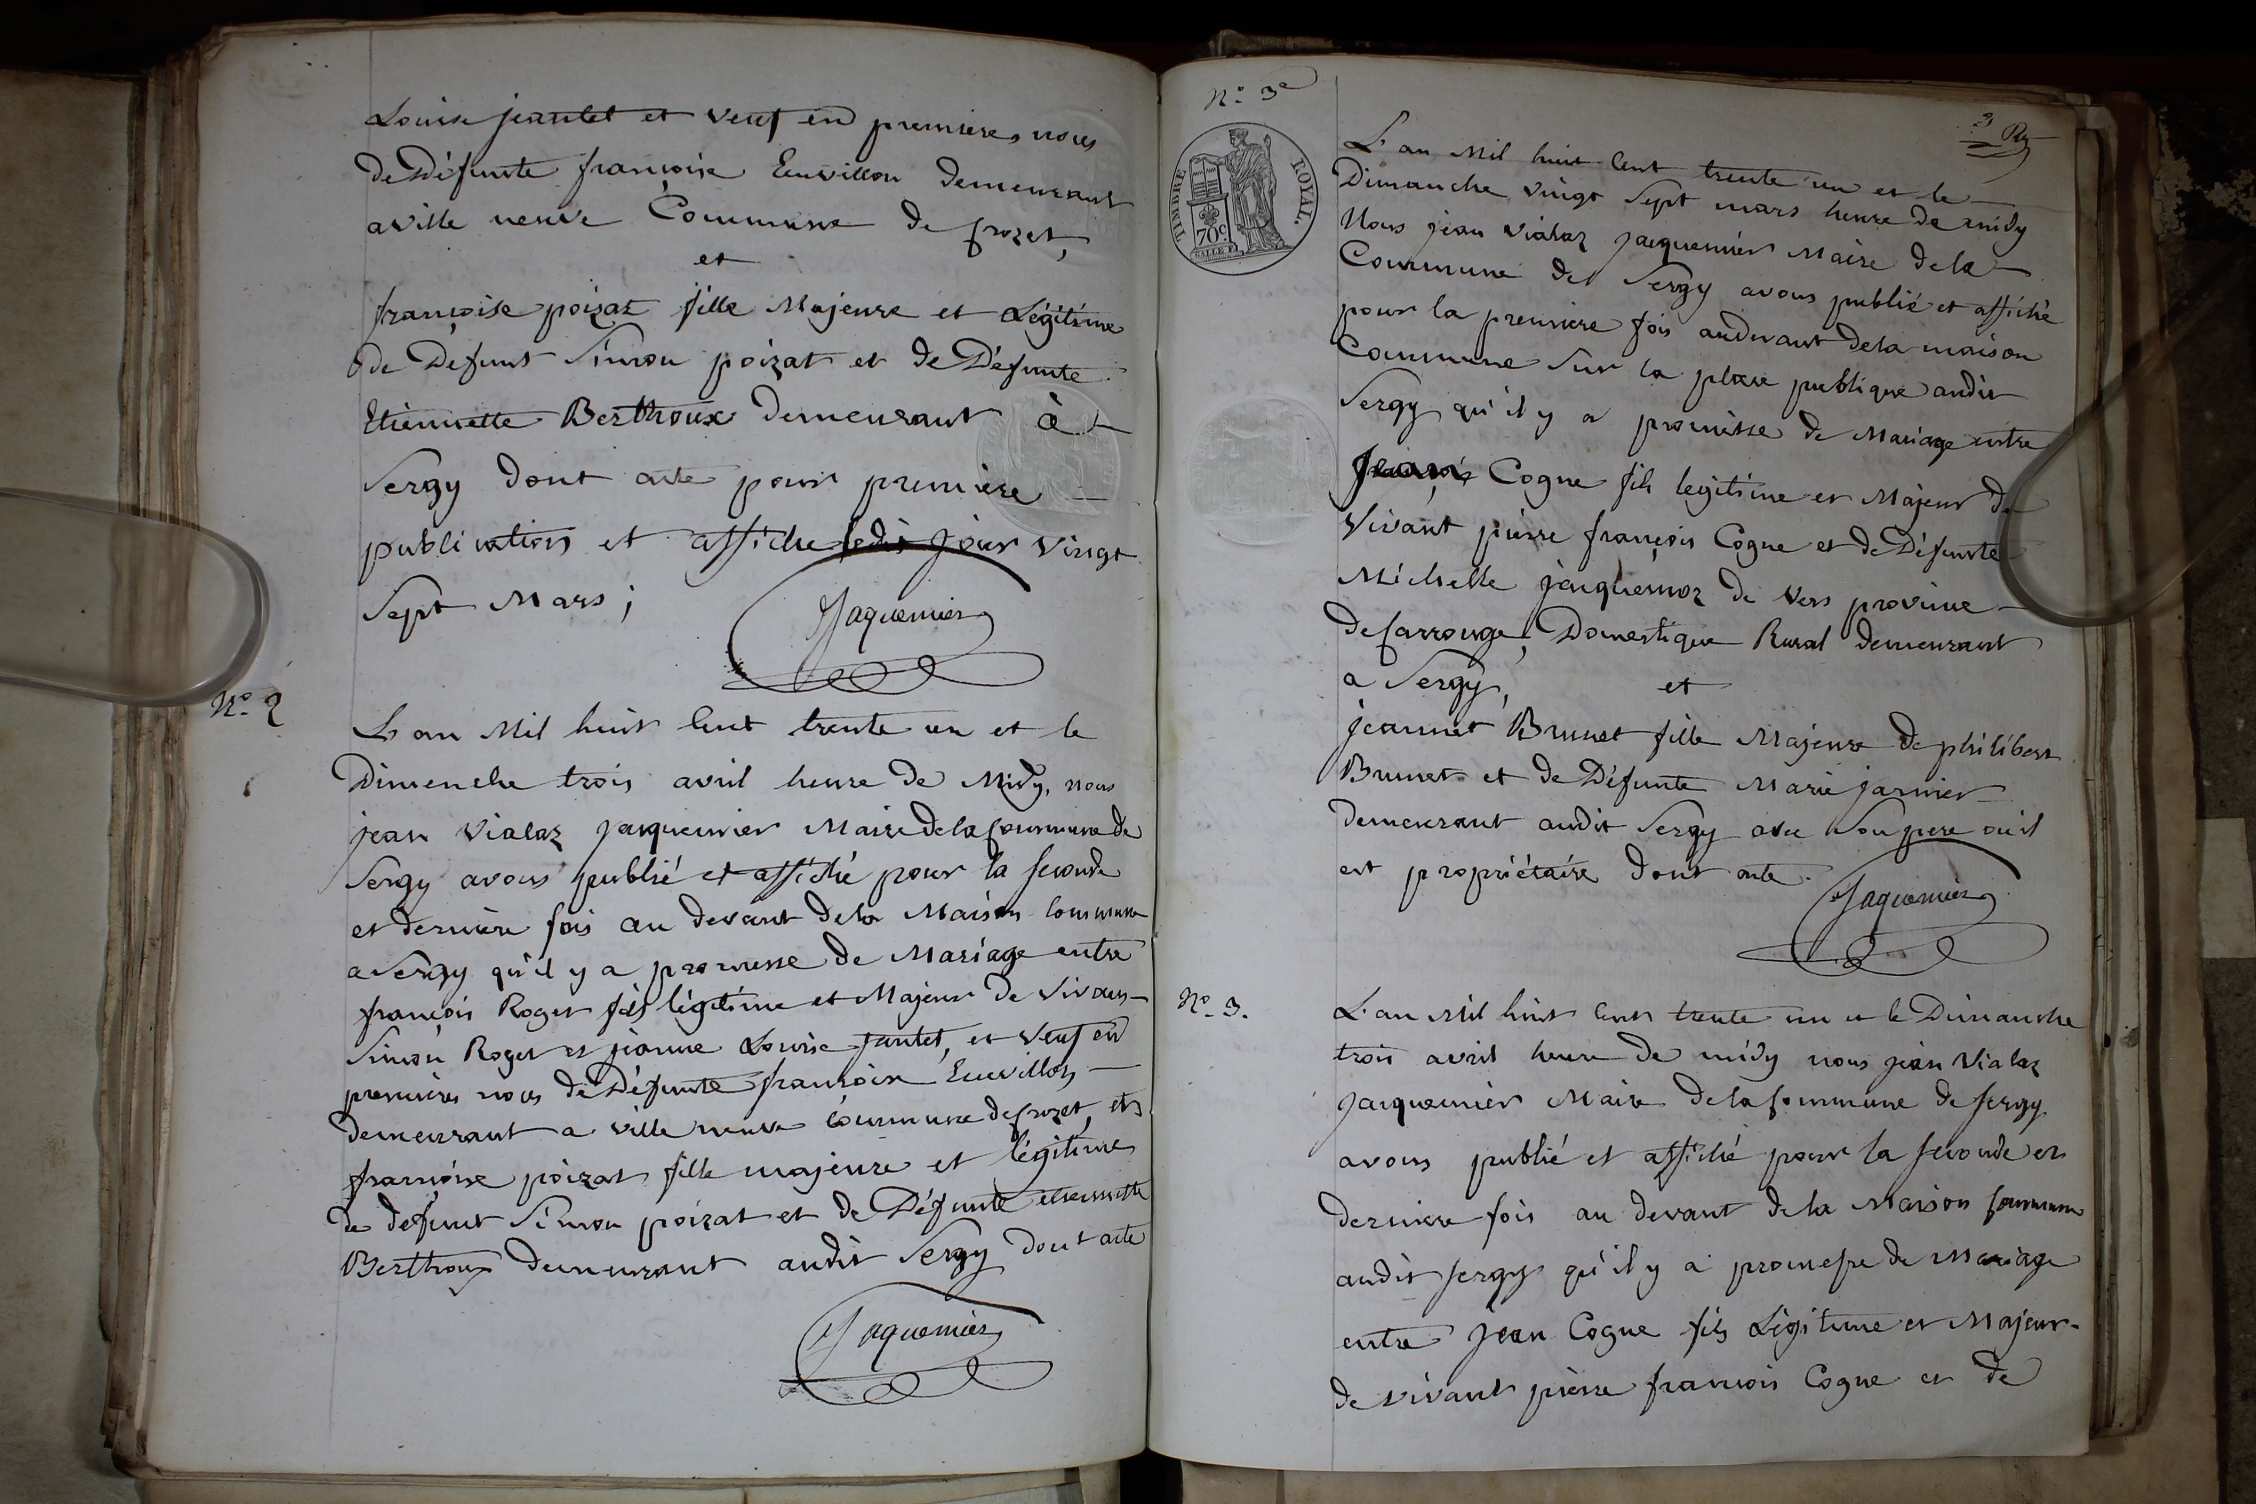 Louise jeantet et veuf en premieres noces
de Défunte françoise Euvillon demeurant
a ville neuve Commune de Crozet,
et
françoise poizat fille Majeure et Légitime
de Défunt Simon poizat et de Défunte
Etiennette Berthoux demeurant à
Sergy dont acte pour première
publication et affiche ledit jour vingt
Sept Mars ;
Jaquemier
N.º 2
L'an Mil huit Cent trente un et le
Dimenche trois avril heure de Midy, nous
jean Vialaz Jacquemier Maire de la Commune de
Sergy avons publié et affiché pour la seconde
et dernière fois au devant de la Maison Commune
a Sergy qu'il y a promesse de Mariage entre
françois Roger fils légitime et Majeur de Vivans
Simon Roger et jeanne Louise Jantet, et Veuf en
premières noces de Défunte françoise Euvillon
demeurant a ville neuve Commune de Crozet, et
françoise poizat fille majeure et légitime
de defunt Simon poizat et de Défunte etiennette
Berthoux demeurant audit Sergy dont acte
Jaquemier
N.º 3e
TIMBRE ROYAL.
70 C.
3
L'an Mil huit Cent trente un et le
Dimanche vingt Sept mars heure de midy
Nous jean Vialaz jacquemier Maire de la
Commune de Sergy avons publié et affiché
pour la premiere fois audevant de la maison
Commune sur la place publique audit
Sergy qu'il y a promesse de Mariage entre
Jean Cogne fils legitime et Majeur de
Vivant pierre françois Cogne et de Défunte
Michelle jacquemoz de Vers province
de Carrouge, Domestique Rural demeurant
a Sergy, et
jeannet Brunet fille Majeure de philibert
Brunet et de Défunte Marie janier
demeurant audit Sergy avec Son pere ou il
est propriétaire dont acte.
Jaquemier
N.º 3.
L'an Mil huit Cent trente un et le Dimanche
trois avril heure de midy nous jean Vialaz
Jacquemier Maire de la Commune de Sergy
avons publié et affiché pour la seconde et
derniere fois au devant de la Maison Commune
audit Sergy qu'il y a promesse de Mariage
entre Jean Cogne fils Légitime et Majeur
de vivant pierre francois Cogne et de